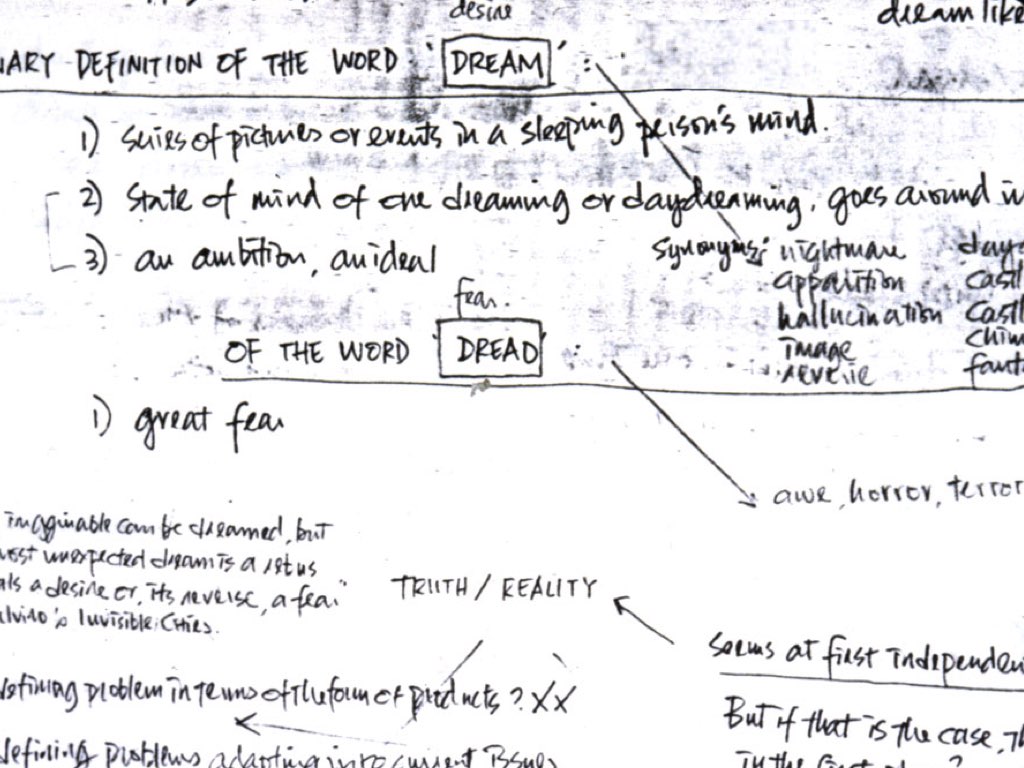 desire
dream like
NARY DEFINITION OF THE WORD 'DREAM' :
1) series of pictures or events in a sleeping person's mind.
2) State of mind of one dreaming or daydreaming. goes around in
3) an ambition, an ideal
Synonyms: nightmare
apparition
hallucination
image
reverie
day
Castl
Castl
Chim
fant
fear.
OF THE WORD 'DREAD' :
1) great fear
awe, horror, terror
imaginable can be dreamed, but
most unexpected dream is a rebus
als a desire or, its reverse, a fear"
lvino's Invisible Cities.
TRUTH / REALITY
Seems at first independen
defining problem in terms of the form of products? XX
But if that is the case, th
defining problems adapting into current issues
in the first place?